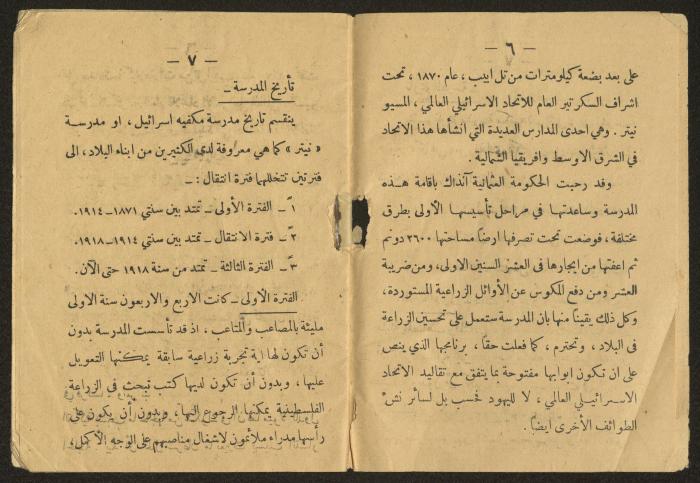 — ٦ —
على بعد بضعة كيلومترات من تل ابيب ، عام ١٨٧٠ ، تحت
اشراف السكرتير العام للاتحاد الاسرائيلي العالمي ، المسيو
نيتر . وهي احدى المدارس العديدة التي انشأها هذا الاتحاد
في الشرق الاوسط وافريقيا الشمالية .
وقد رحبت الحكومة العثمانية آنذاك باقامة هذه
المدرسة وساعدتها في مراحل تأسيسها الأولى بطرق
مختلفة ، فوضعت تحت تصرفها ارضًا مساحتها ٢٦٠٠ دونم
ثم اعفتها من ايجارها في العشر السنين الاولى ، ومن ضريبة
العشر ومن دفع المكوس عن الأوائل الزراعية المستوردة ،
وكل ذلك يقينًا منها بان المدرسة ستعمل على تحسين الزراعة
في البلاد ، وتحترم ، كما فعلت حقًا ، برنامجها الذي ينص
على ان تكون ابوابها مفتوحة بما يتفق مع تقاليد الاتحاد
الاسرائيلي العالمي ، لا لليهود فحسب بل لسائر نشء
الطوائف الأخرى ايضًا .
— ٧ —
تأريخ المدرسة ـ
ينقسم تاريخ مدرسة مكفيه اسرائيل ، او مدرسة
« نيتر » كما هي معروفة لدى الكثيرين من ابناء البلاد ، الى
فترتين تتخللهما فترة انتقال : ـ
١ ـ الفترة الأولى ـ تمتد بين سنتي ١٨٧١ ـ ١٩١٤ .
٢ ـ فترة الانتقال ـ تمتد بين سنتي ١٩١٤ ـ ١٩١٨ .
٣ ـ الفترة الثالثة ـ تمتد من سنة ١٩١٨ حتى الآن .
الفترة الأولى ـ كانت الاربع والاربعون سنة الاولى
مليئة بالمصاعب والمتاعب ، اذ قد تأسست المدرسة بدون
أن تكون لها اية تجربة زراعية سابقة يمكنها التعويل
عليها ، وبدون أن تكون لديها كتب تبحث في الزراعة
الفلسطينية يمكنها الرجوع اليها ، وبدون أن يكون على
رأسها مدراء ملائمون لاشغال مناصبهم على الوجه الأكمل ،